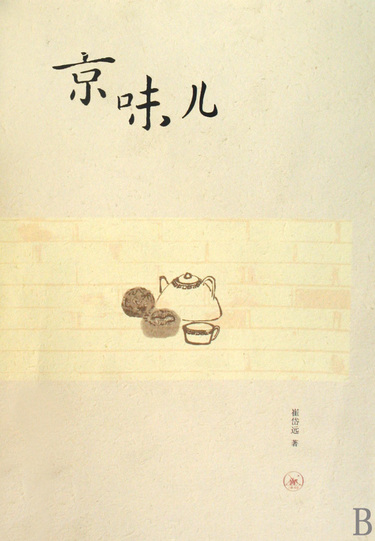 京味儿
崔岱远 著
B